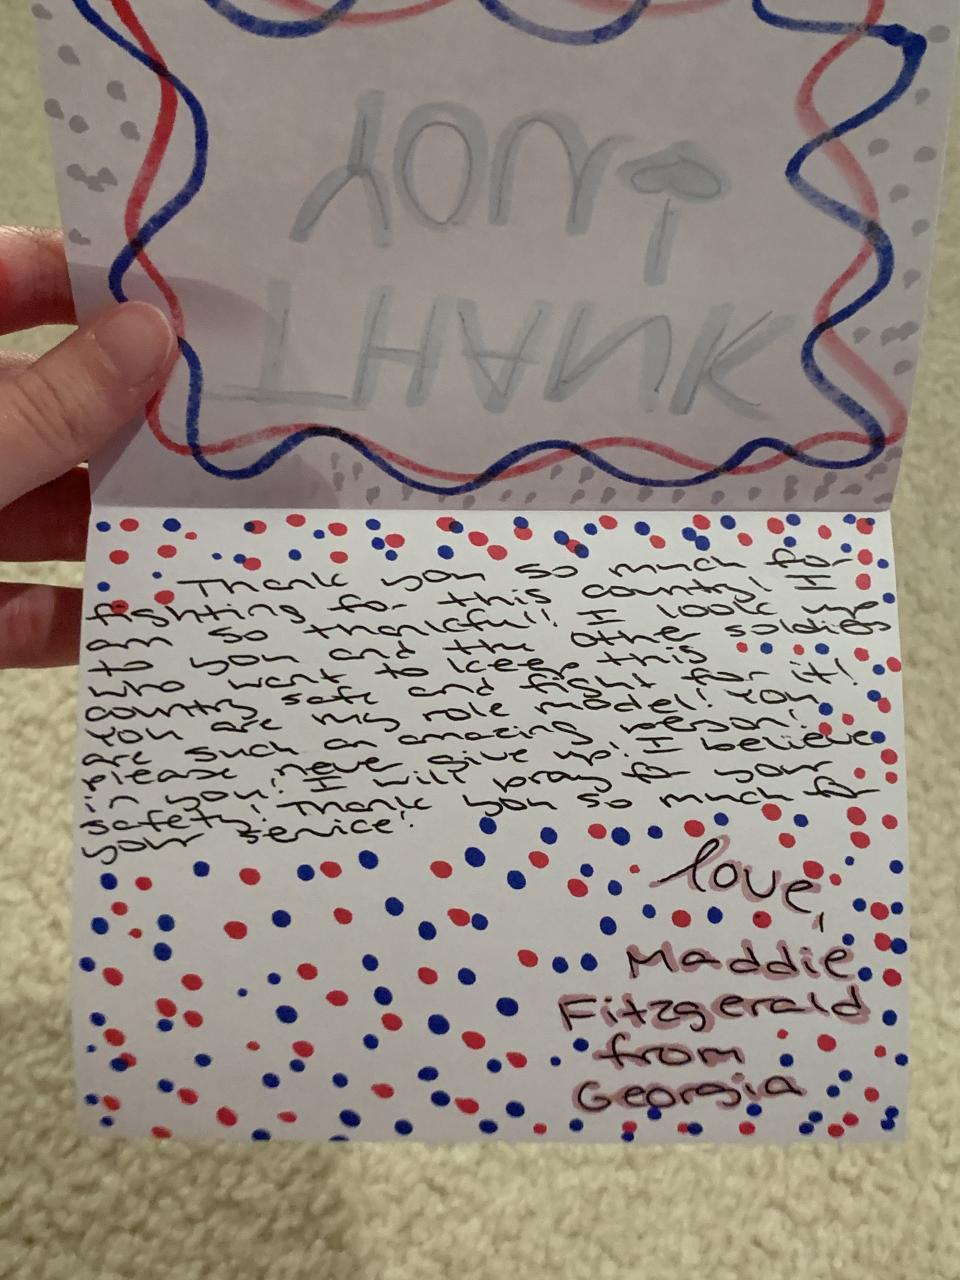 THANK
YOU
Thank you so much for
fighting for this country! I
am so thankful! I look up
to you and the other soldiers
who want to keep this
country safe and fight for it!
You are my role model! You
are such an amazing person!
Please never give up! I believe
in you! I will pray for your
safety! Thank you so much for
your service!
love,
Maddie
Fitzgerald
from
Georgia